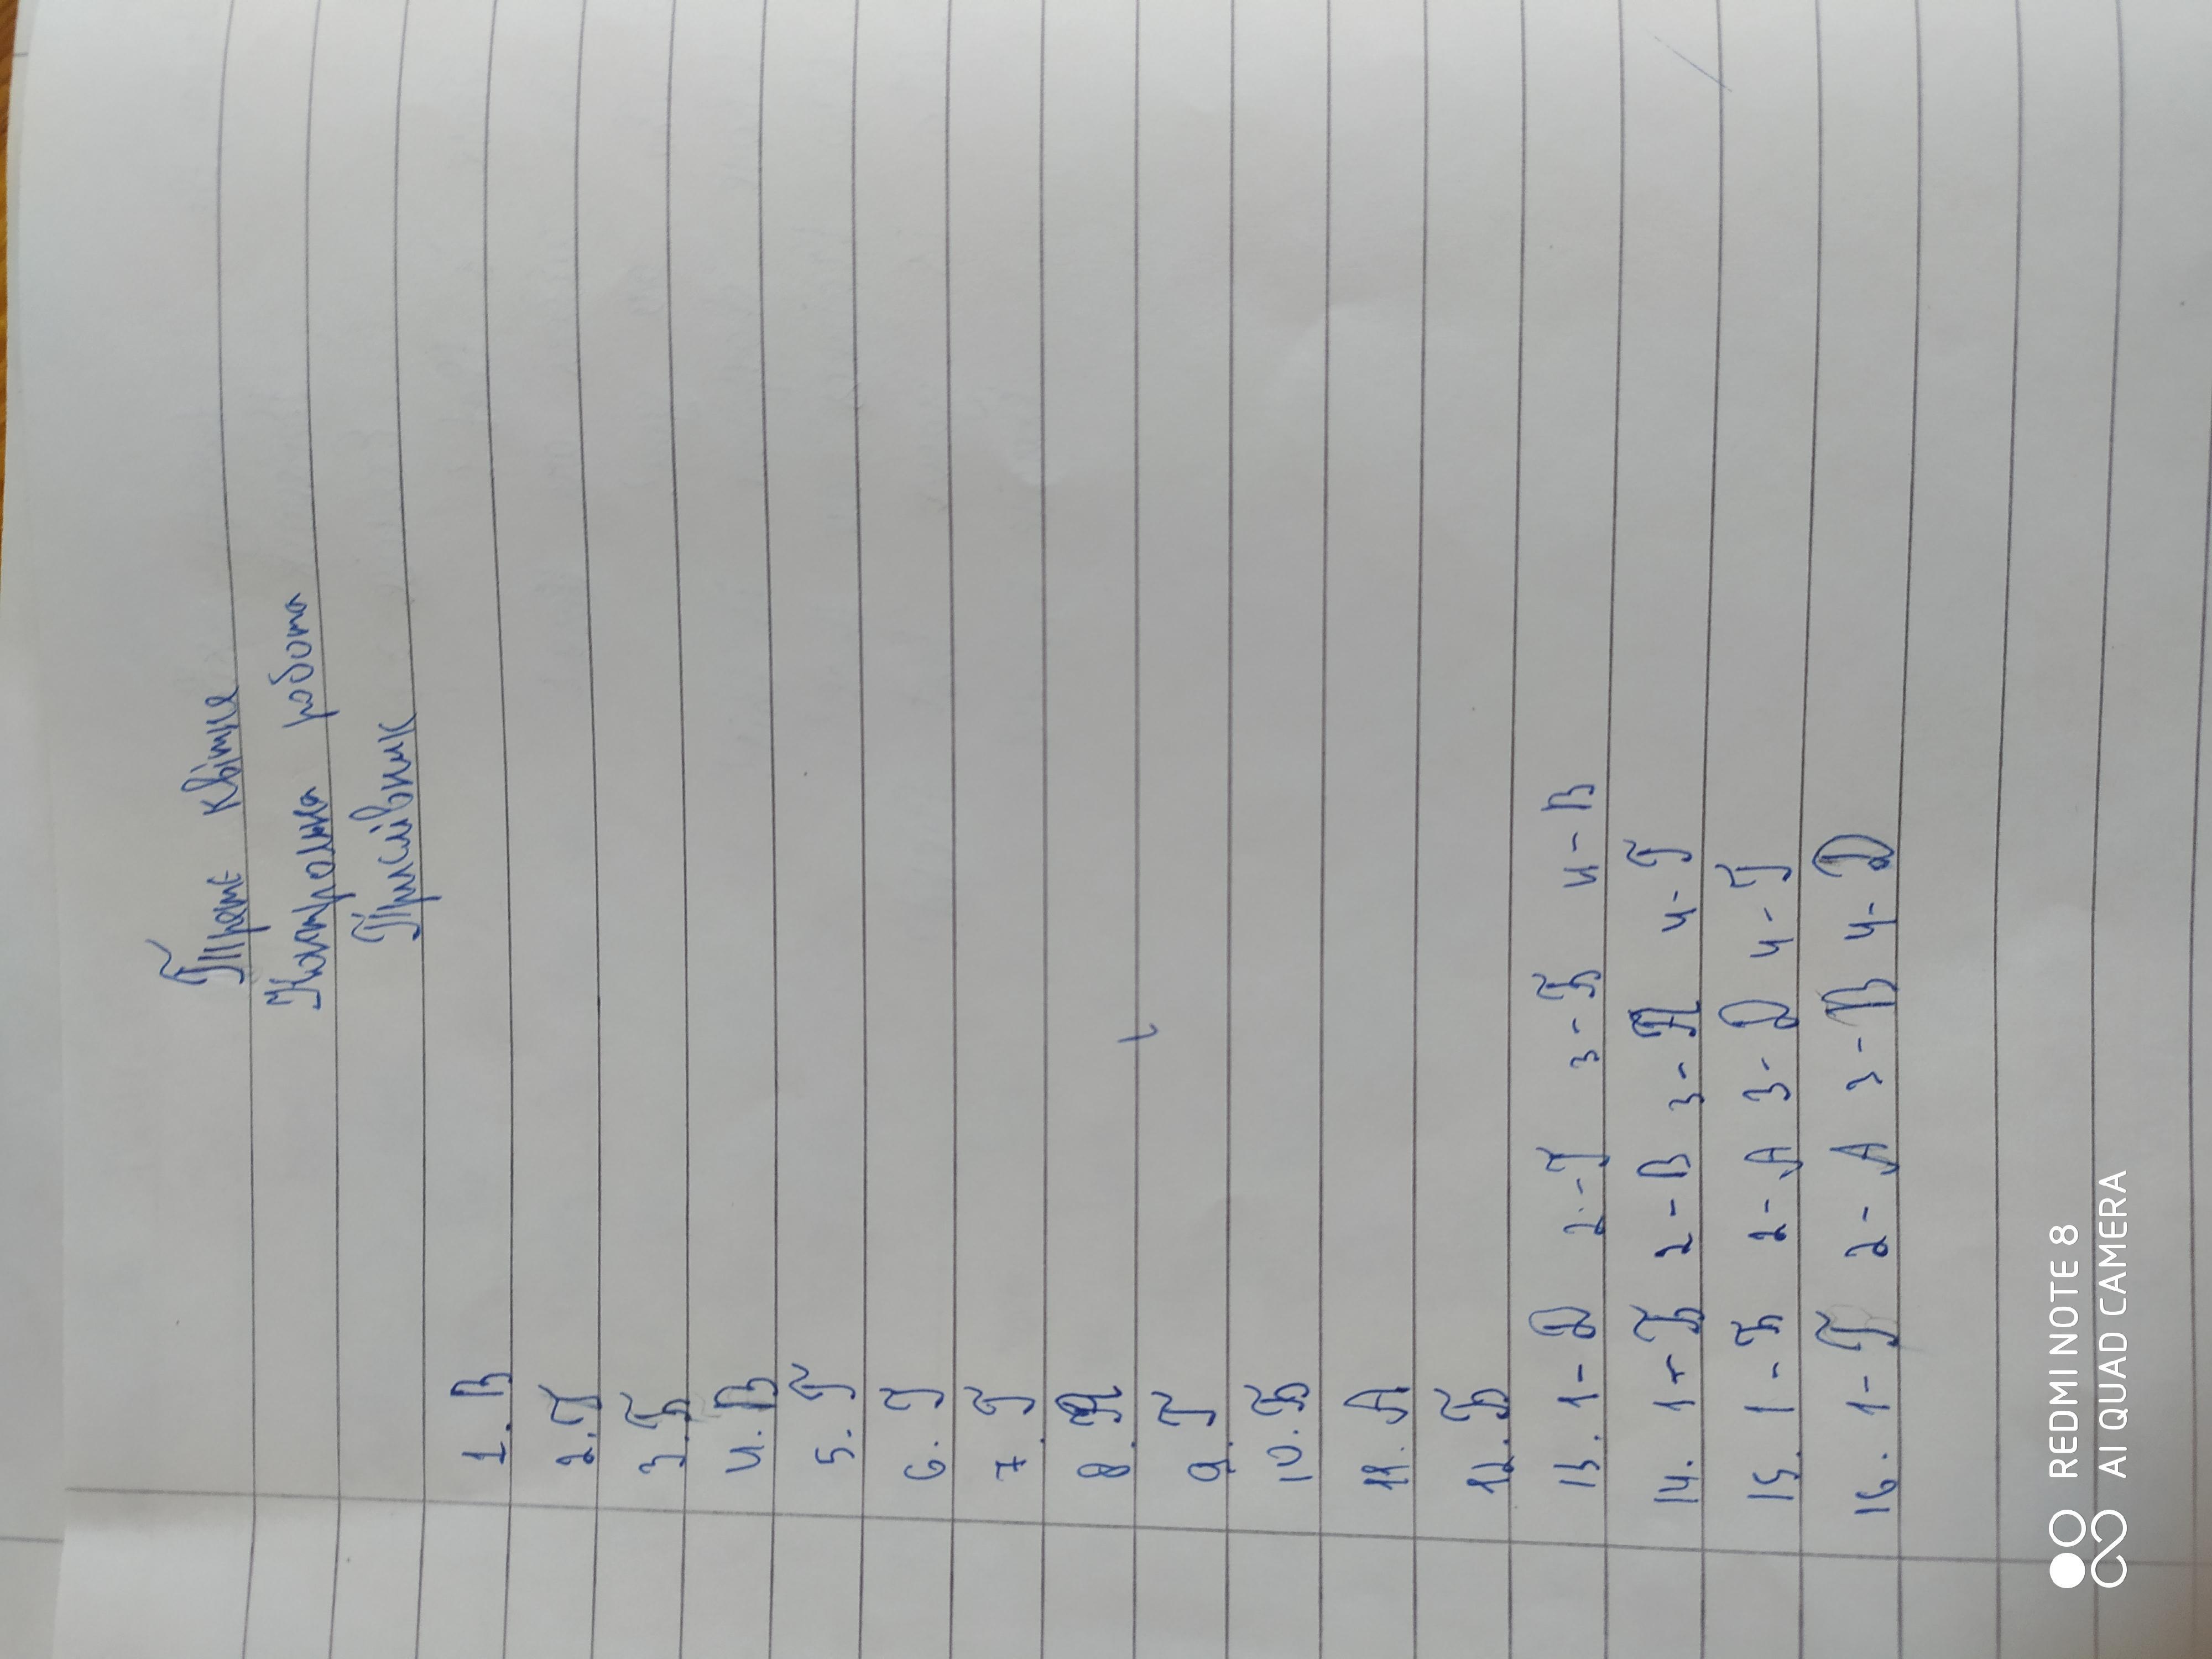 Трет квітня
Контрольна робота
Прислівник
1. В
2. Г
3. Б
4. В
5. Г
6. Г
7. Г
8. А
9. Г
10. Б
11. А
12. Б
13. 1-Д 2-Г 3-Б 4-В
14. 1-Б 2-В 3-А 4-Г
15. 1-Б 2-А 3-Д 4-Г
16. 1-Г 2-А 3-В 4-Д
REDMI NOTE 8
AI QUAD CAMERA